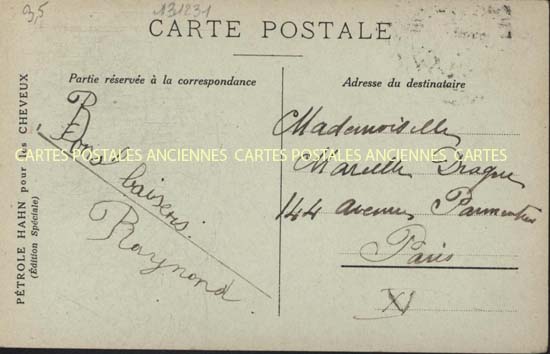 35
131231
CARTE POSTALE
Partie réservée à la correspondance
Adresse du destinataire
PÉTROLE HAHN pour les CHEVEUX
(Édition Spéciale)
Bons baisers.
Raymond
Mademoiselle
Marcelle Draque
144 avenue Parmentier
Paris
XI
CARTES POSTALES ANCIENNES CARTES POSTALES ANCIENNES CARTES